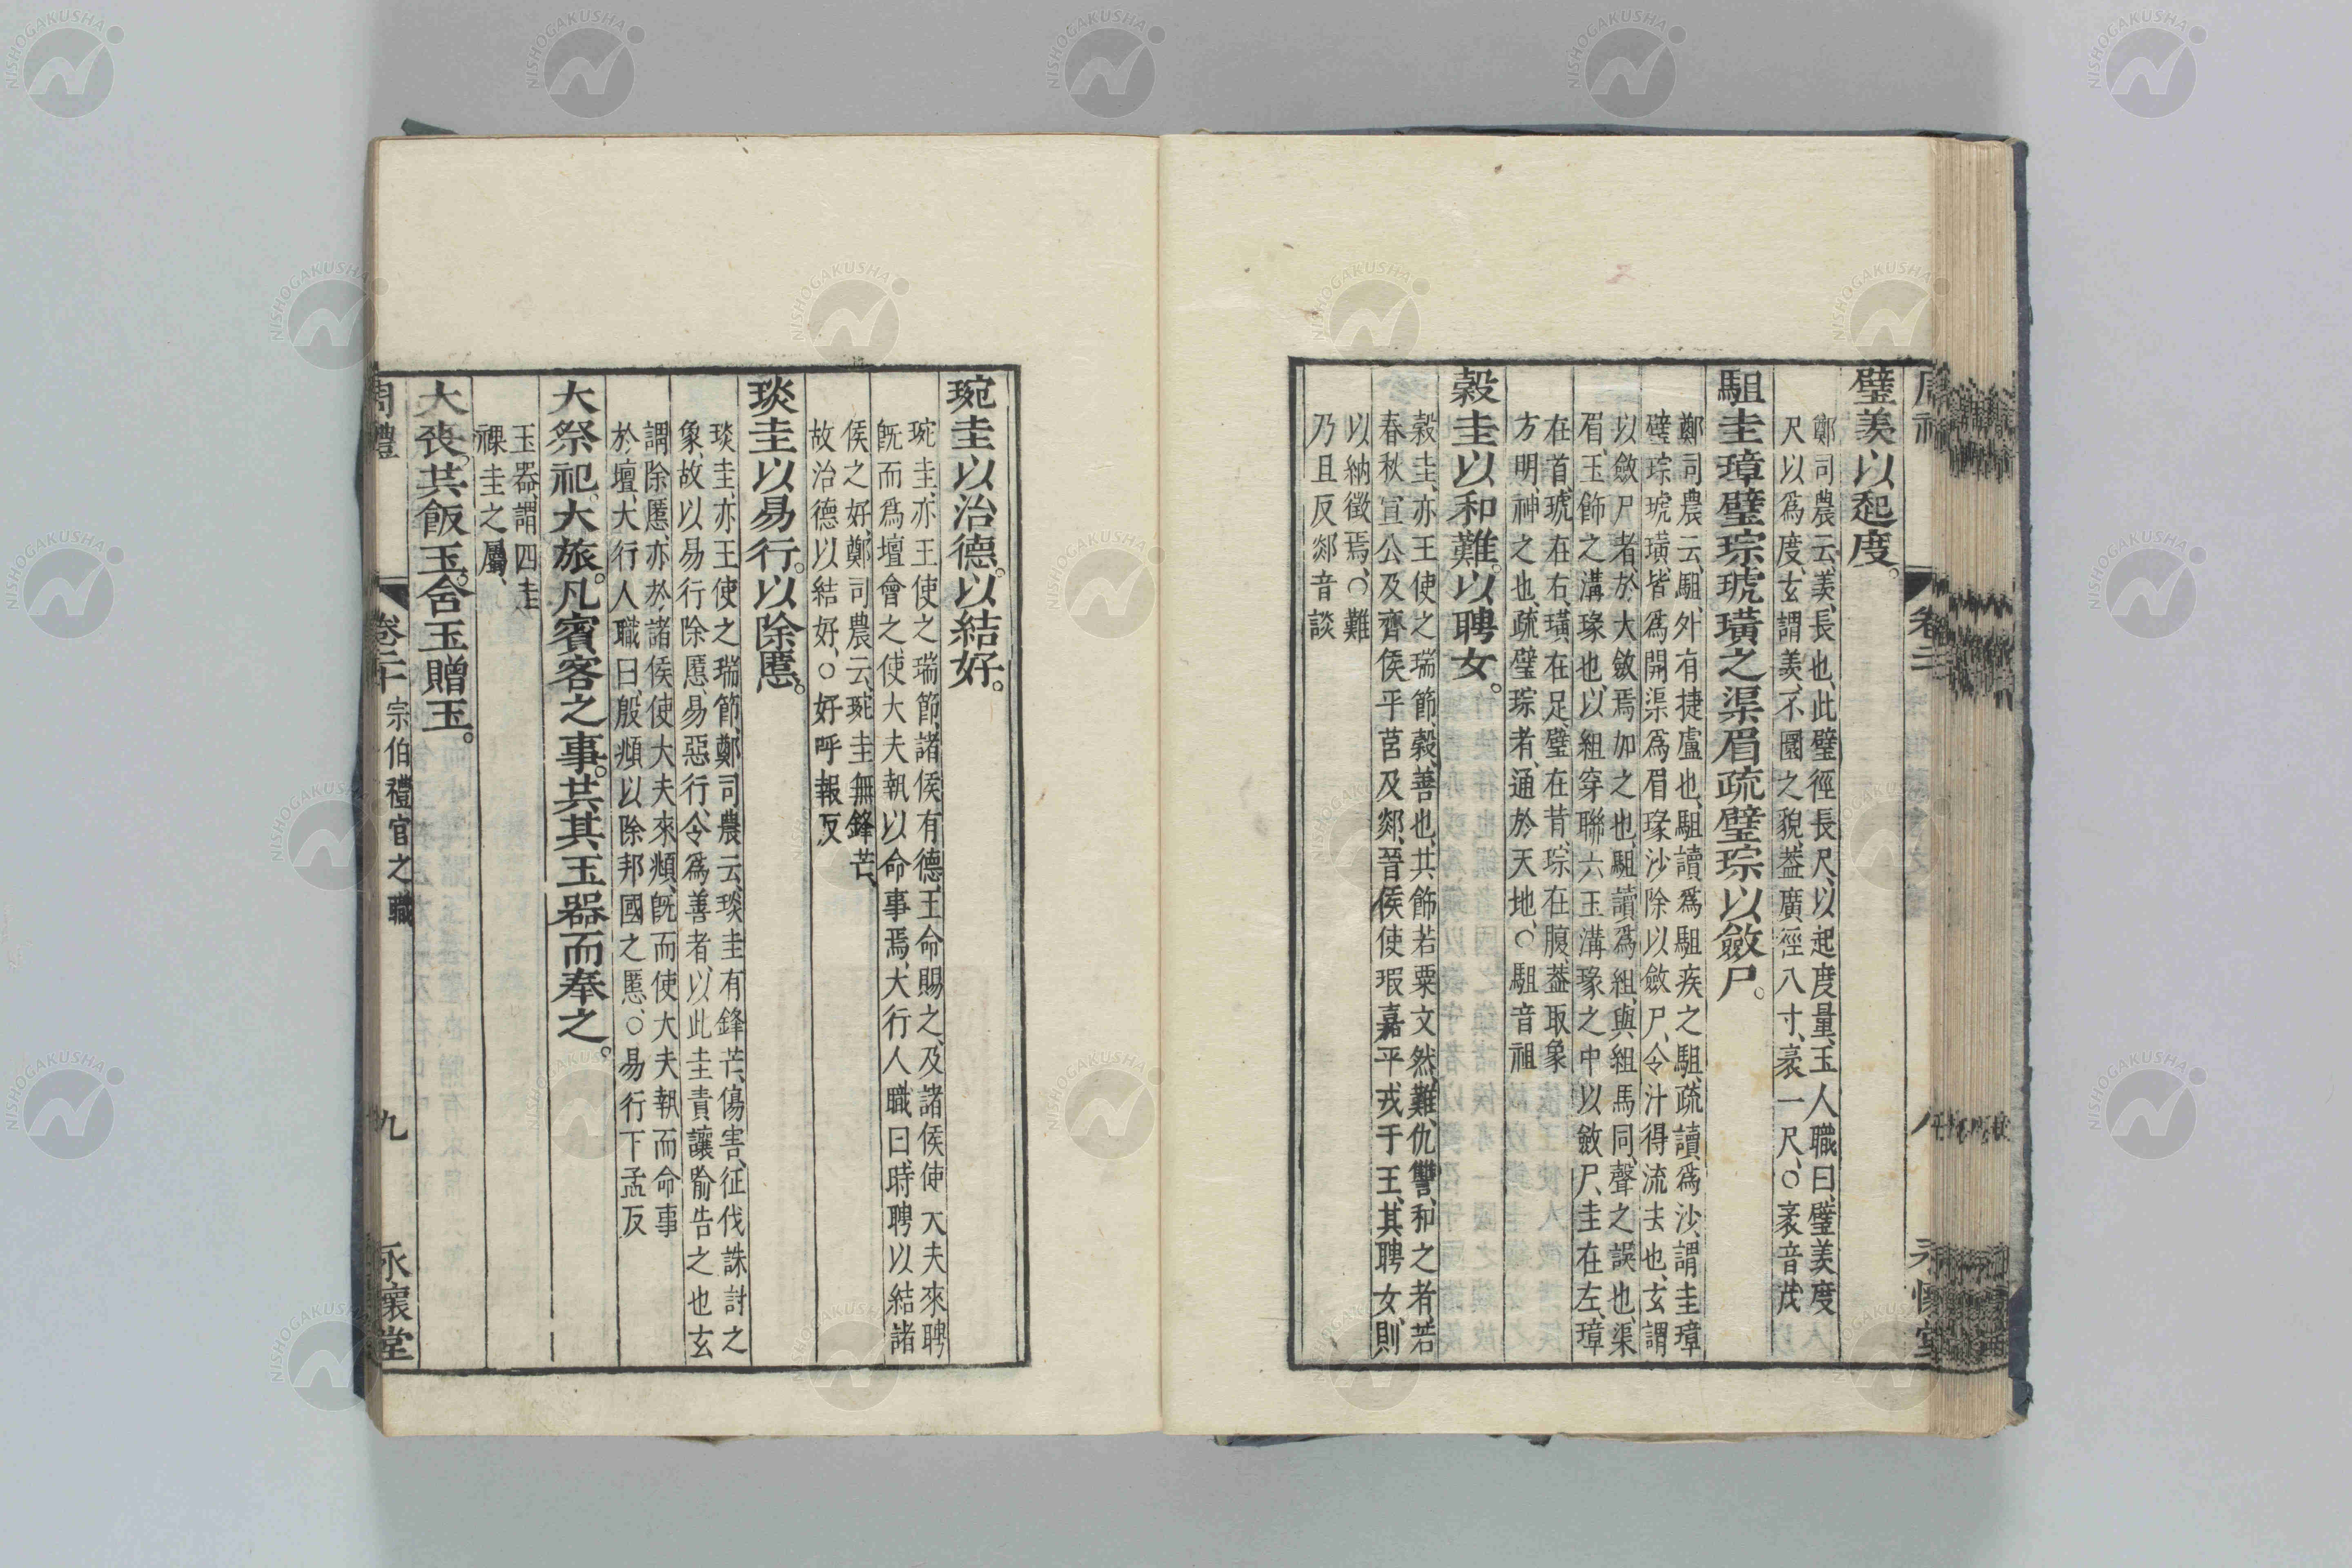 璧羨以起度。
鄭司農云、羨、長也、此璧徑長尺、以起度量、玉人職曰、璧羨度
尺以爲度、玄謂羨、不圜之貌、葢廣徑八寸、袤一尺、○袤音茂
駔圭璋璧琮琥璜之渠眉疏璧琮以斂尸。
鄭司農云、駔、外有捷盧也、駔讀爲駔疾之駔、疏讀爲沙、謂圭璋
璧琮琥璜、皆爲開渠爲眉瑑沙除以斂尸、令汁得流去也、玄謂
以斂尸者、於大斂焉加之也、駔讀爲組、與組馬同、聲之誤也、渠
眉、玉飾之溝瑑也、以組穿聯六玉溝瑑之中以斂尸、圭在左、璋
在首、琥在右、璜在足、璧在背、琮在腹、葢取象
方明、神之也、疏璧琮者、通於天地、○駔音祖
穀圭以和難。以聘女。
穀圭、亦王使之瑞節、穀、善也、其飾若粟文然、難、仇讐、和之者、若
春秋宣公及齊侯平莒及郯、晉侯使瑕嘉平戎于王、其聘女、則
以納徵焉、○難
乃旦反郯音談
琬圭以治德。以結好。
琬圭、亦王使之瑞節、諸侯有德、王命賜之、及諸侯使大夫來聘
旣而爲壇會之、使大夫執以命事焉、大行人職曰、時聘以結諸
侯之好、鄭司農云、琬圭無鋒芒、
故治德以結好、○好呼報反
琰圭以易行。以除慝。
琰圭、亦王使之瑞節、鄭司農云、琰圭有鋒芒、傷害、征伐誅討之
象、故以易行除慝、易惡行、令爲善者、以此圭責讓喻告之也玄
謂除慝、亦於諸侯使大夫來頫、旣而使大夫執而命事
於壇、大行人職曰、殷頫以除邦國之慝、○易行下孟反
大祭祀。大旅。凡賓客之事。共其玉器而奉之。
玉器、謂四圭
祼圭之屬、
大喪。共飯玉。含玉贈玉。
周禮 卷二十 宗伯禮官之職 九 永懷堂